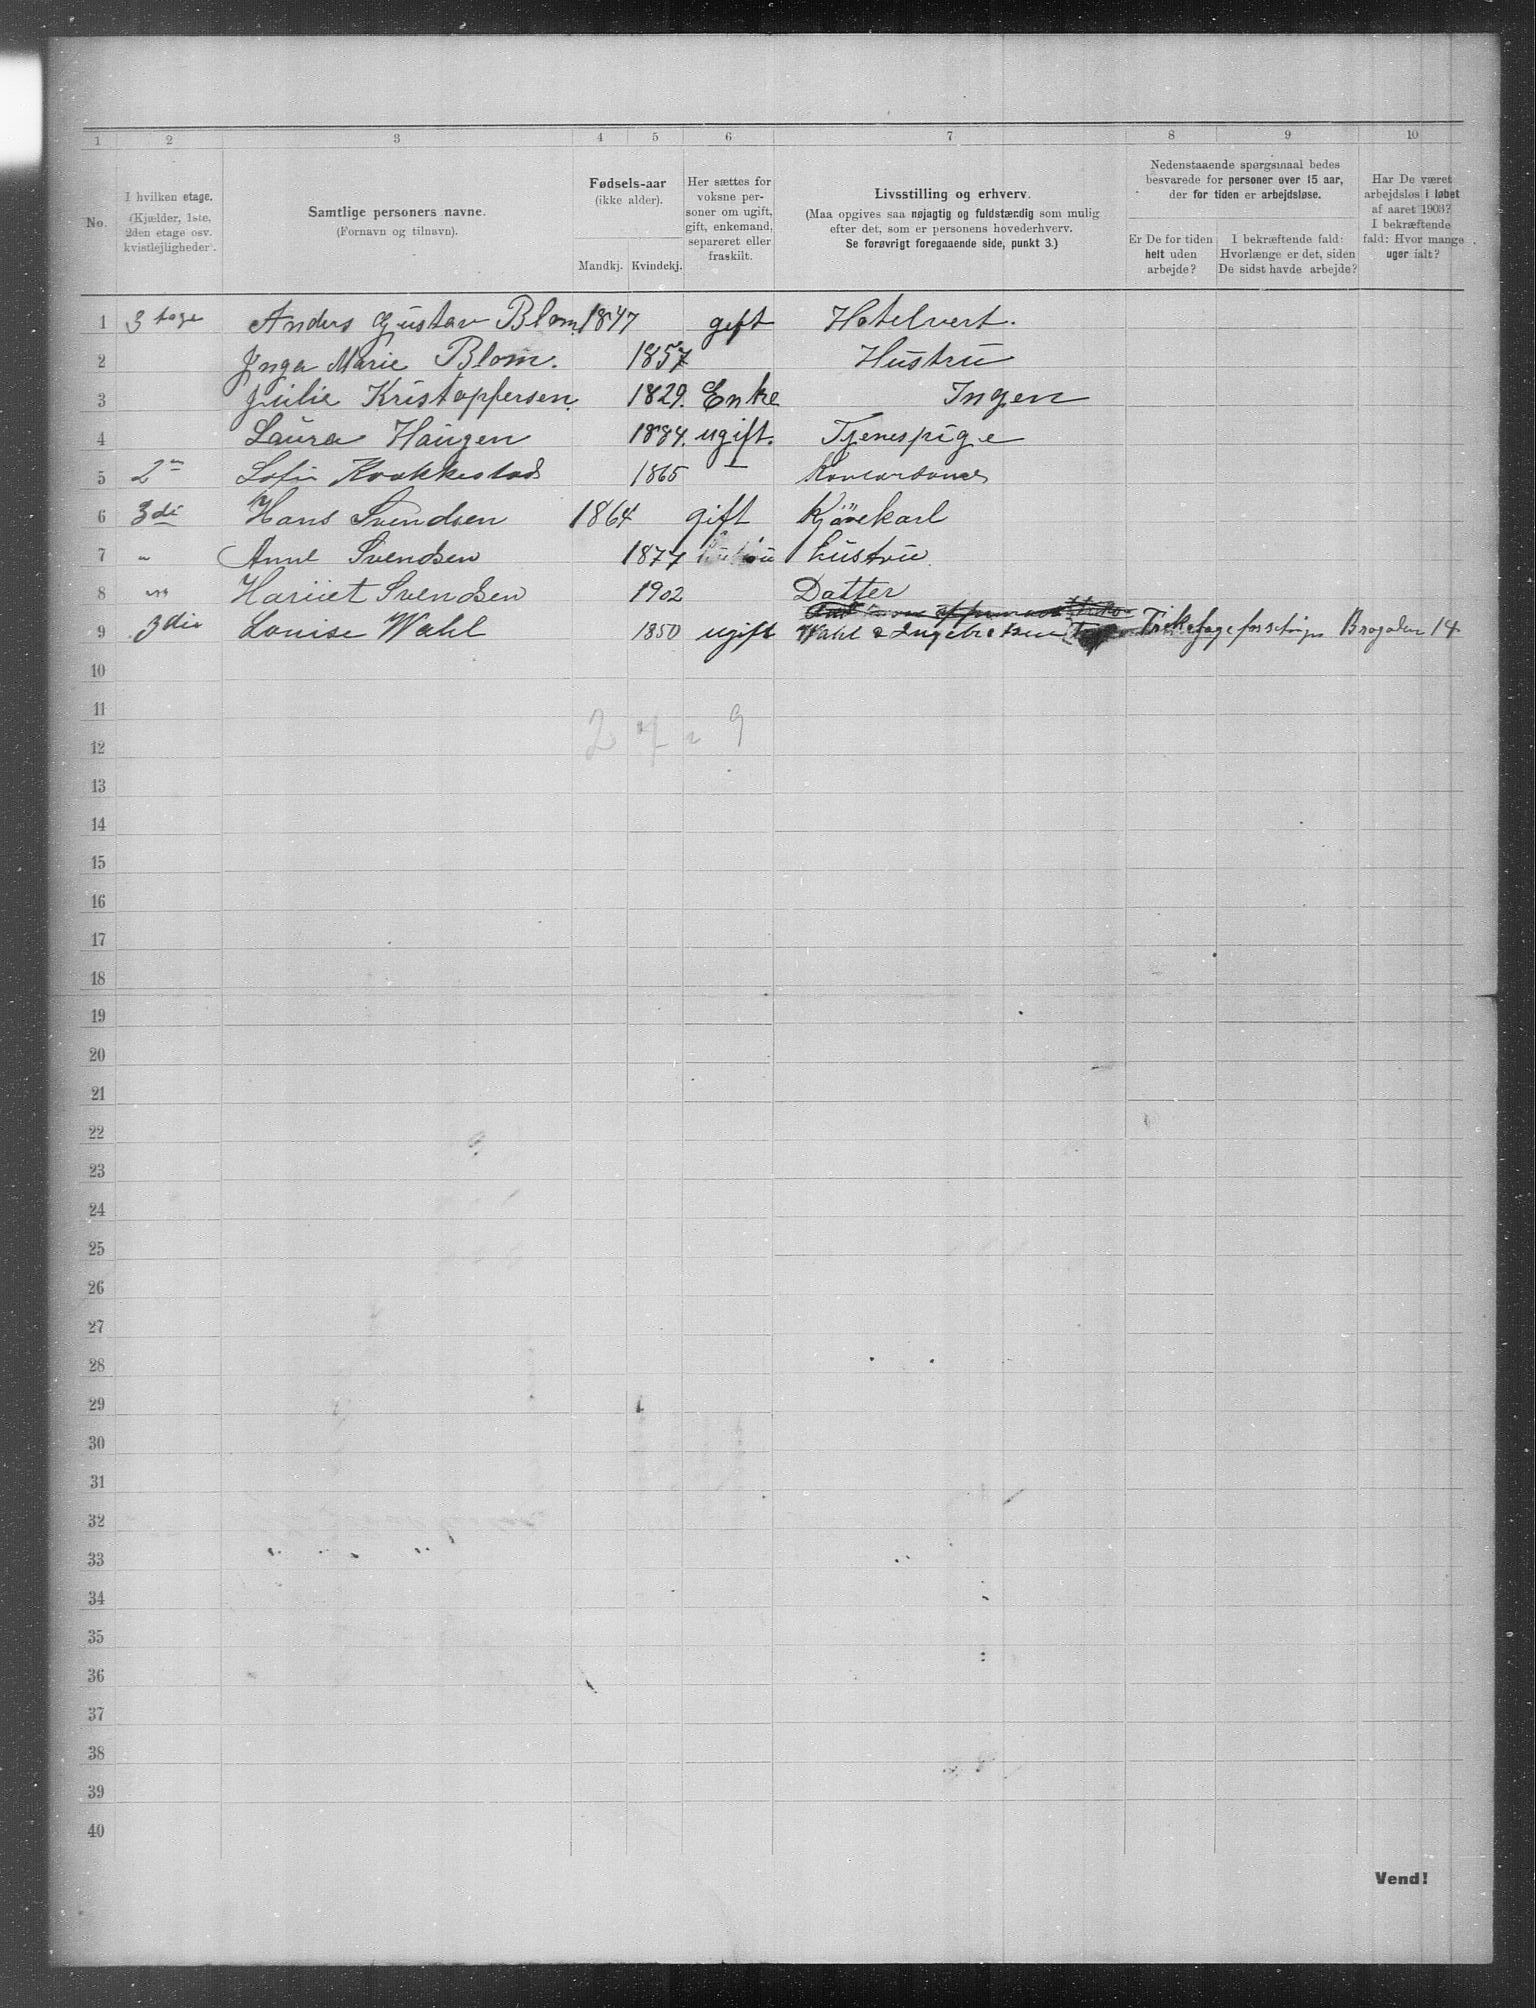 1 2 3 4 5 6 7 8 9 10
No.
I hvilken etage.
(Kjælder, 1ste,
2den etage osv.
kvistlejligheder.
Samtlige personers navne.
(Fornavn og tilnavn).
Fødsels-aar
(ikke alder).
Mandkj. Kvindekj.
Her sættes for
voksne per-
soner om ugift,
gift, enkemand,
separeret eller
fraskilt.
Livsstilling og erhverv.
(Maa opgives saa nøjagtig og fuldstændig som mulig
efter det, som er personens hovederhverv.
Se forøvrigt foregaaende side, punkt 3.)
Nedenstaaende spørgsmaal bedes
besvarede for personer over 15 aar,
der for tiden er arbejdsløse.
Er De for tiden
helt uden
arbejde?
I bekræftende fald:
Hvorlænge er det, siden
De sidst havde arbejde?
Har De været
arbejdsløs i løbet
af aaret 1903?
I bekræftende
fald: Hvor mange
uger ialt?
1 3 tage Anders Gustav Blom 1847 gift Hotelvert.
2 Inga Marie Blom. 1857 Hustru
3 Julie Kristoffersen. 1829. Enke Ingen
4 Laura Haugen 1884. ugift. Tjenespige
5 2 Sofie 1865 -
6 3di Hans Svendsen 1864 gift Kjørekarl
7 " Anne Svendsen 1877 Hustru
8 " Harriet Svendsen 1902 Datter
9 3die Louise Wahl 1850 ugift Wahl & Ingebretsen
10
11
12
2 7 9
13
14
15
16
17
18
19
20
21
22
23
24
25
26
27
28
29
30
31
32
33
34
35
36
37
38
39
40
Vend!